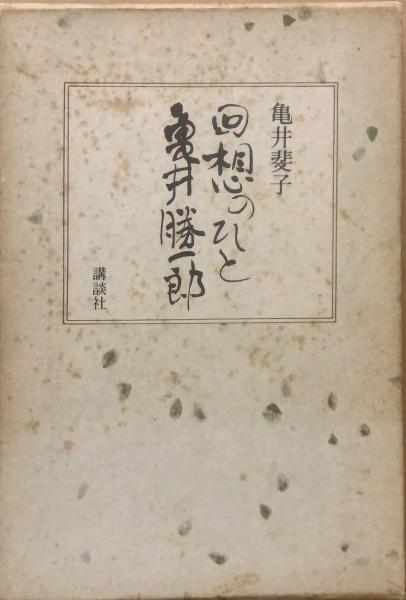 亀井斐子
回想のひと
亀井勝一郎
講談社